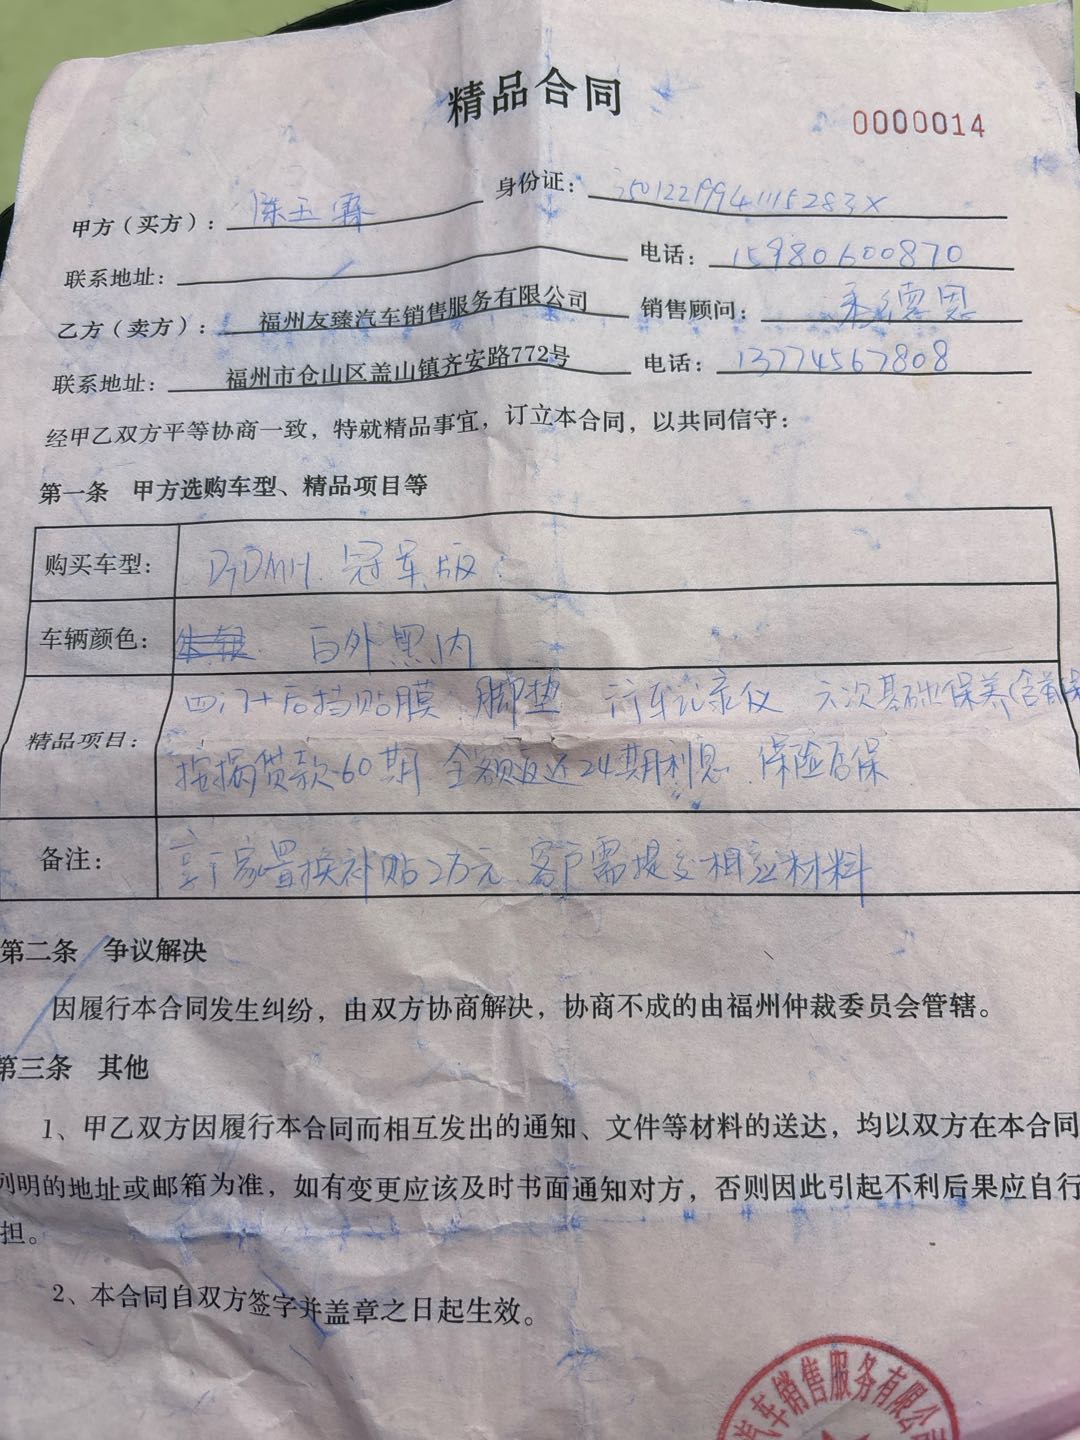 精品合同
0000014
甲方（买方）： 陈玉霖 身份证： 35012219941115283X
联系地址： 电话： 15980600870
乙方（卖方）： 福州友臻汽车销售服务有限公司 销售顾问： 德恩
联系地址： 福州市仓山区盖山镇齐安路772号 电话： 13774567808
经甲乙双方平等协商一致，特就精品事宜，订立本合同，以共同信守：
第一条 甲方选购车型、精品项目等
购买车型： 冠军版
车辆颜色： 白外黑内
精品项目： 四门+后挡贴膜 脚垫 行车记录仪 六次基础保养(含首保
按揭贷款60期 全额返还24期利息 保险店保
备注： 享厂家置换补贴2万元 客户需提交相应材料
第二条 争议解决
因履行本合同发生纠纷，由双方协商解决，协商不成的由福州仲裁委员会管辖。
第三条 其他
1、甲乙双方因履行本合同而相互发出的通知、文件等材料的送达，均以双方在本合同
列明的地址或邮箱为准，如有变更应该及时书面通知对方，否则因此引起不利后果应自行
担。
2、本合同自双方签字并盖章之日起生效。
汽车销售服务有限公司